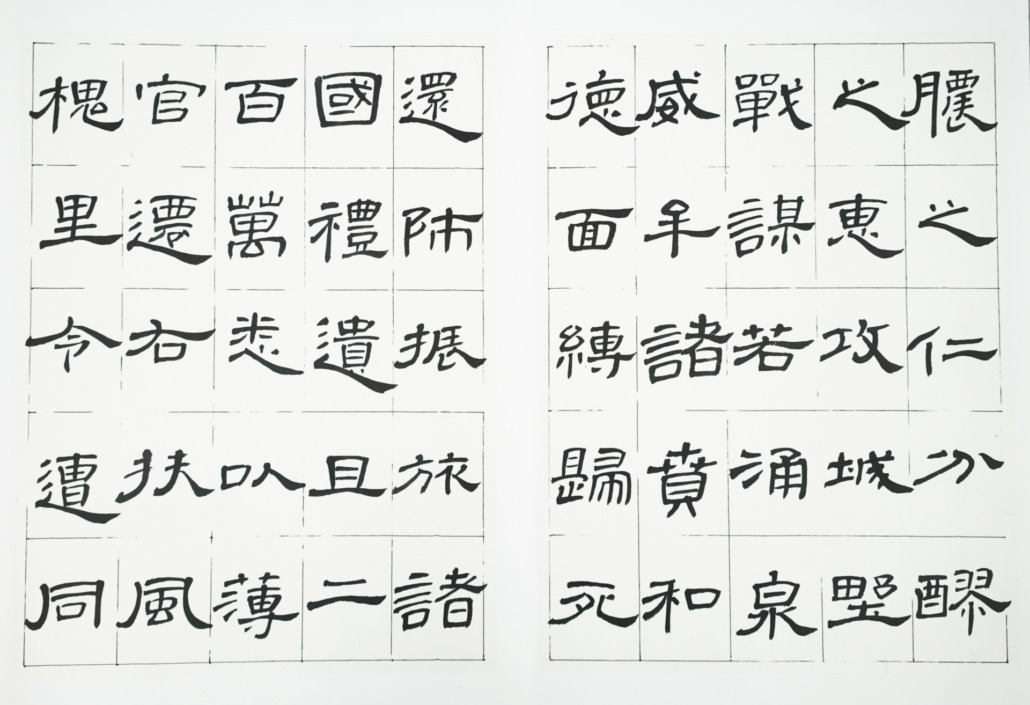 膿之仁分醪
之惠攻城野
戰謀若涌泉
威牟諸賁和
德面縛歸死
還師振旅諸
國禮遺且二
百萬悉以薄
官遷右扶風
槐里令遭同